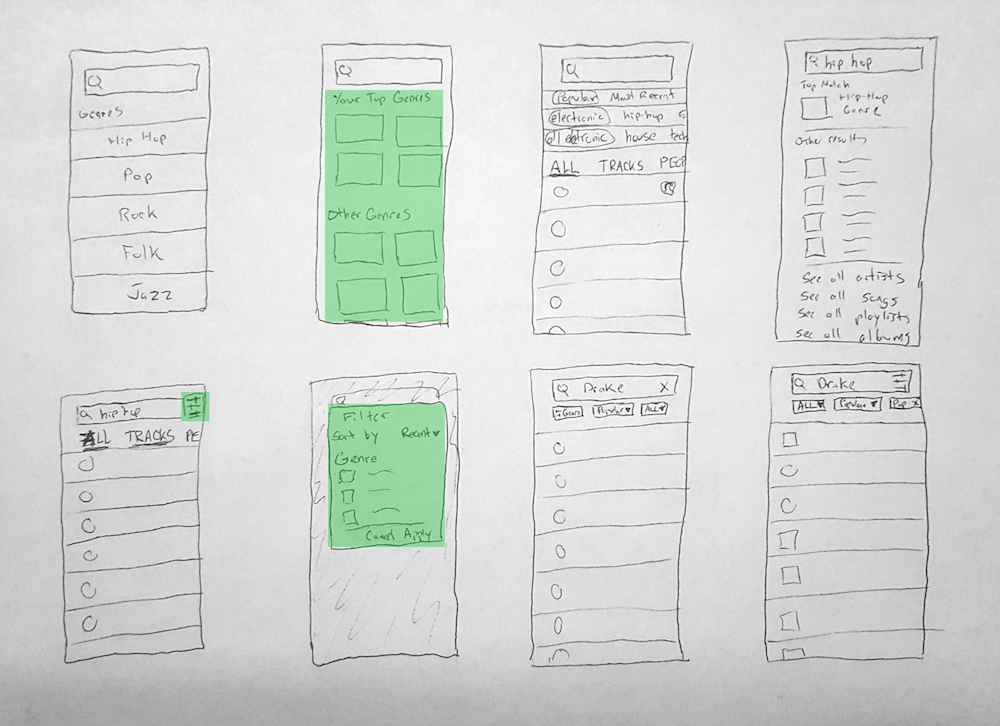 Genres
Hip Hop
Pop
Rock
Folk
Jazz
Your Top Genres
Other Genres
Popular Most Recent
electronic hip-hop
all electronic house tech
ALL TRACKS PEOP
hip hop
Top Match
Hip-Hop
Genre
Other results
See all artists
See all songs
See all playlists
See all albums
hip hop
ALL TRACKS PE
Filter
Sort by Recent
Genre
Cancel Apply
Drake X
Genre Popular All
Drake
ALL Popular Pop X